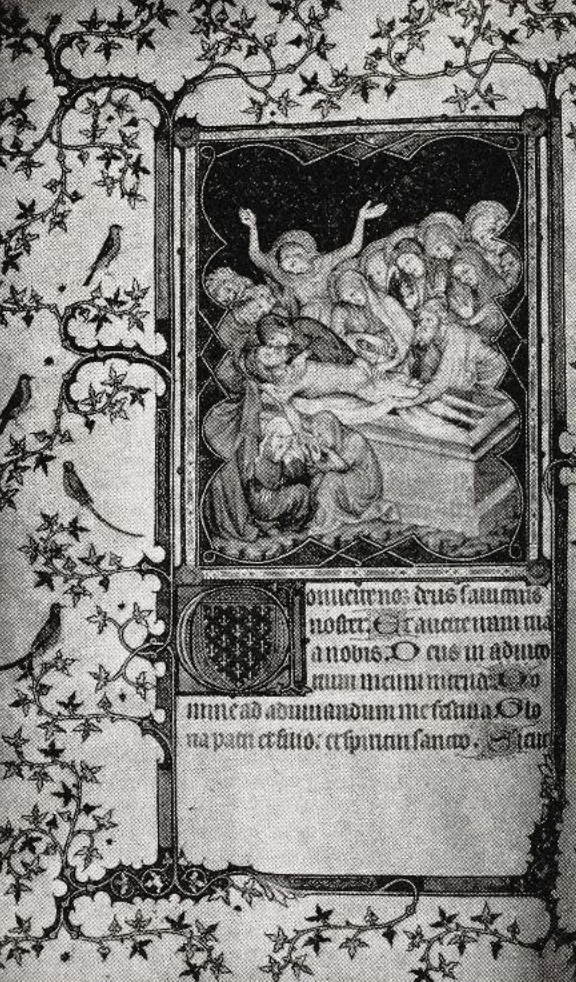 Conuerte nos deus salutaris
noster. Et auerte iram tua
a nobis. Deus in adiuto
rium meum intende. Do
mine ad adiuuandum me festina. Glo
ria patri et filio: et spiritui sancto. Sicut